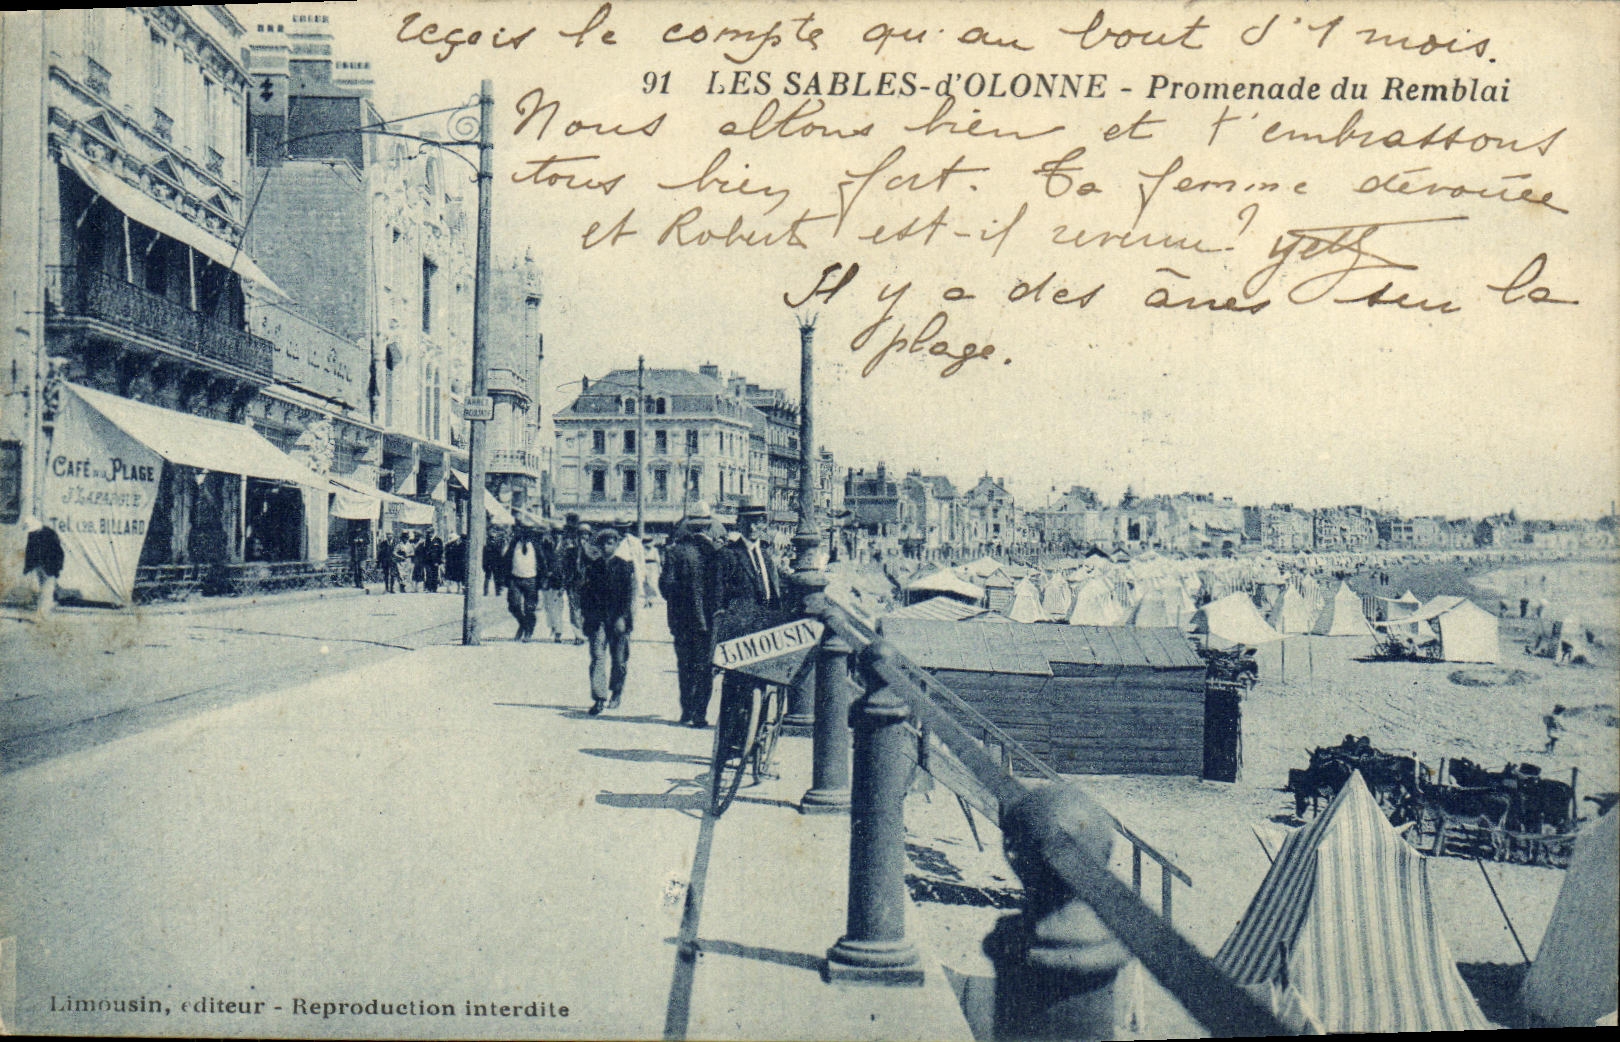 reçois le compte qu'au bout d'1 mois.
91 LES SABLES-d'OLONNE - Promenade du Remblai
Nous allons bien et t'embrassons
tous bien fort. Ta femme dévouée
et Robert est-il revenu?
Il y a des ânes sur la
plage.
ARRET
FACULTATIF
CAFÉ DE LA PLAGE
J. LAFARGUE
Tel. 1.98. BILLARD
LIMOUSIN
Limousin, éditeur - Reproduction interdite